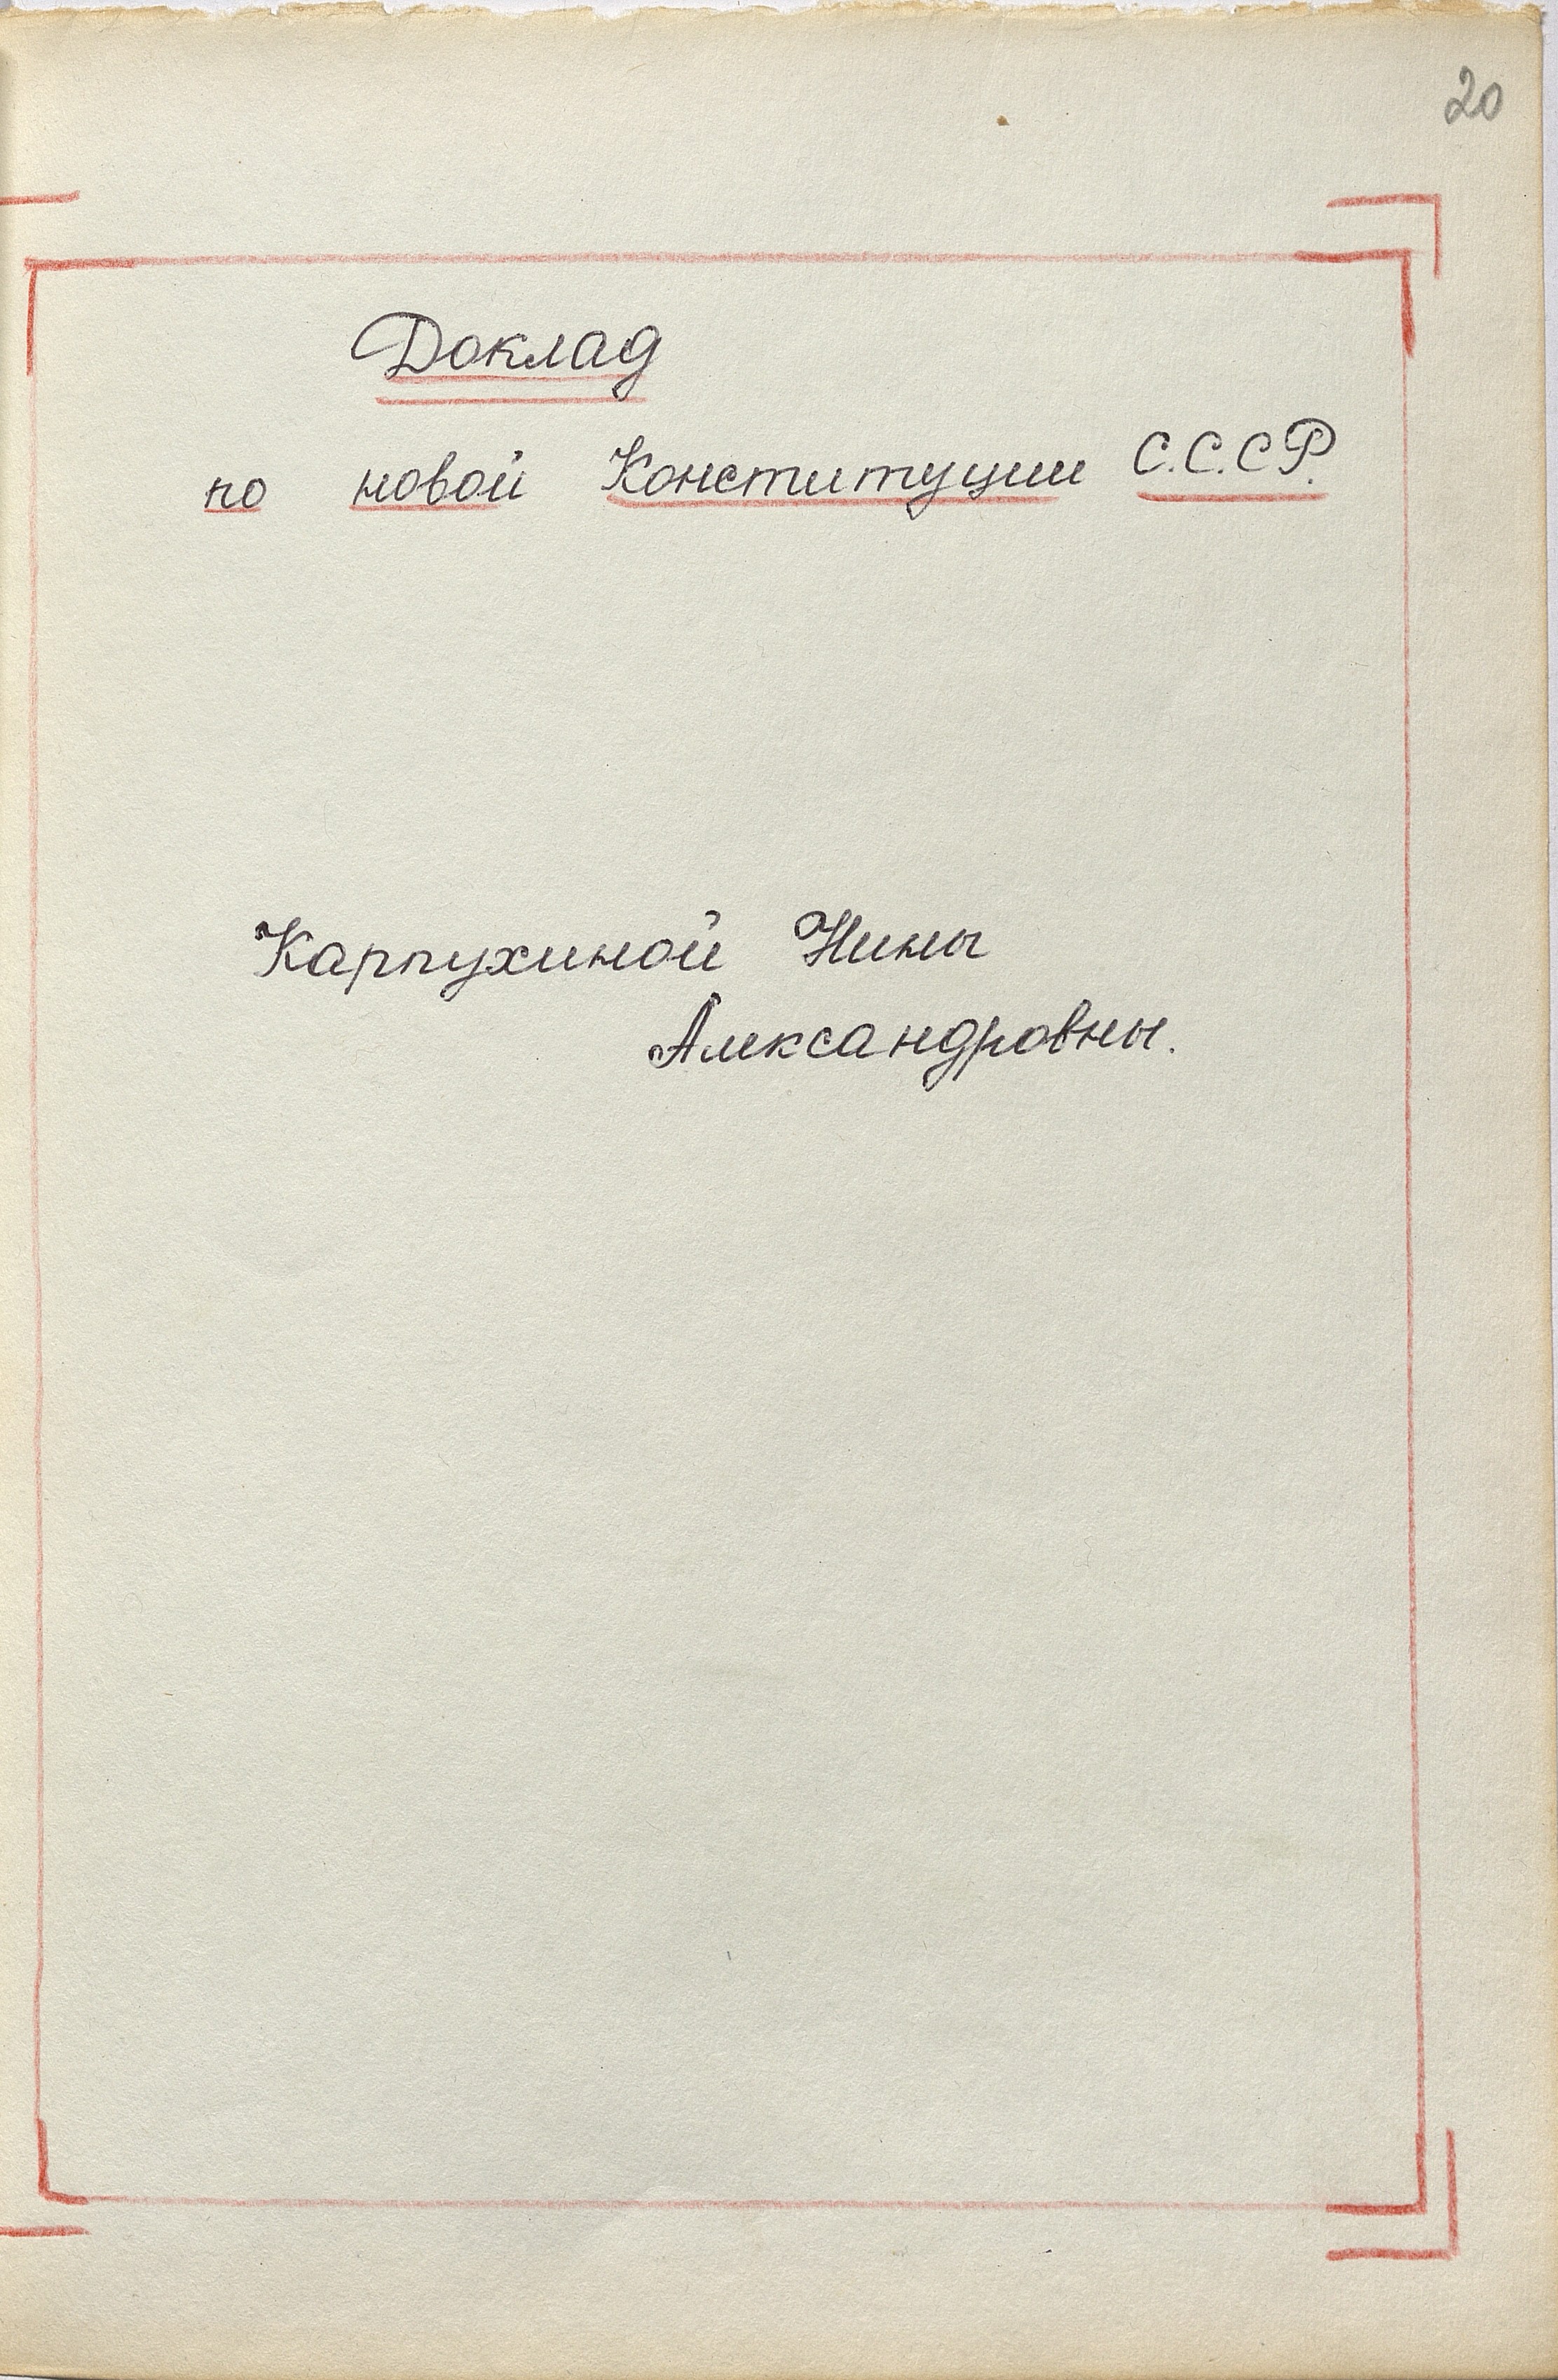 20
Доклад
по новой Конституции С.С.СР.
Карпухиной Нины
Александровны.